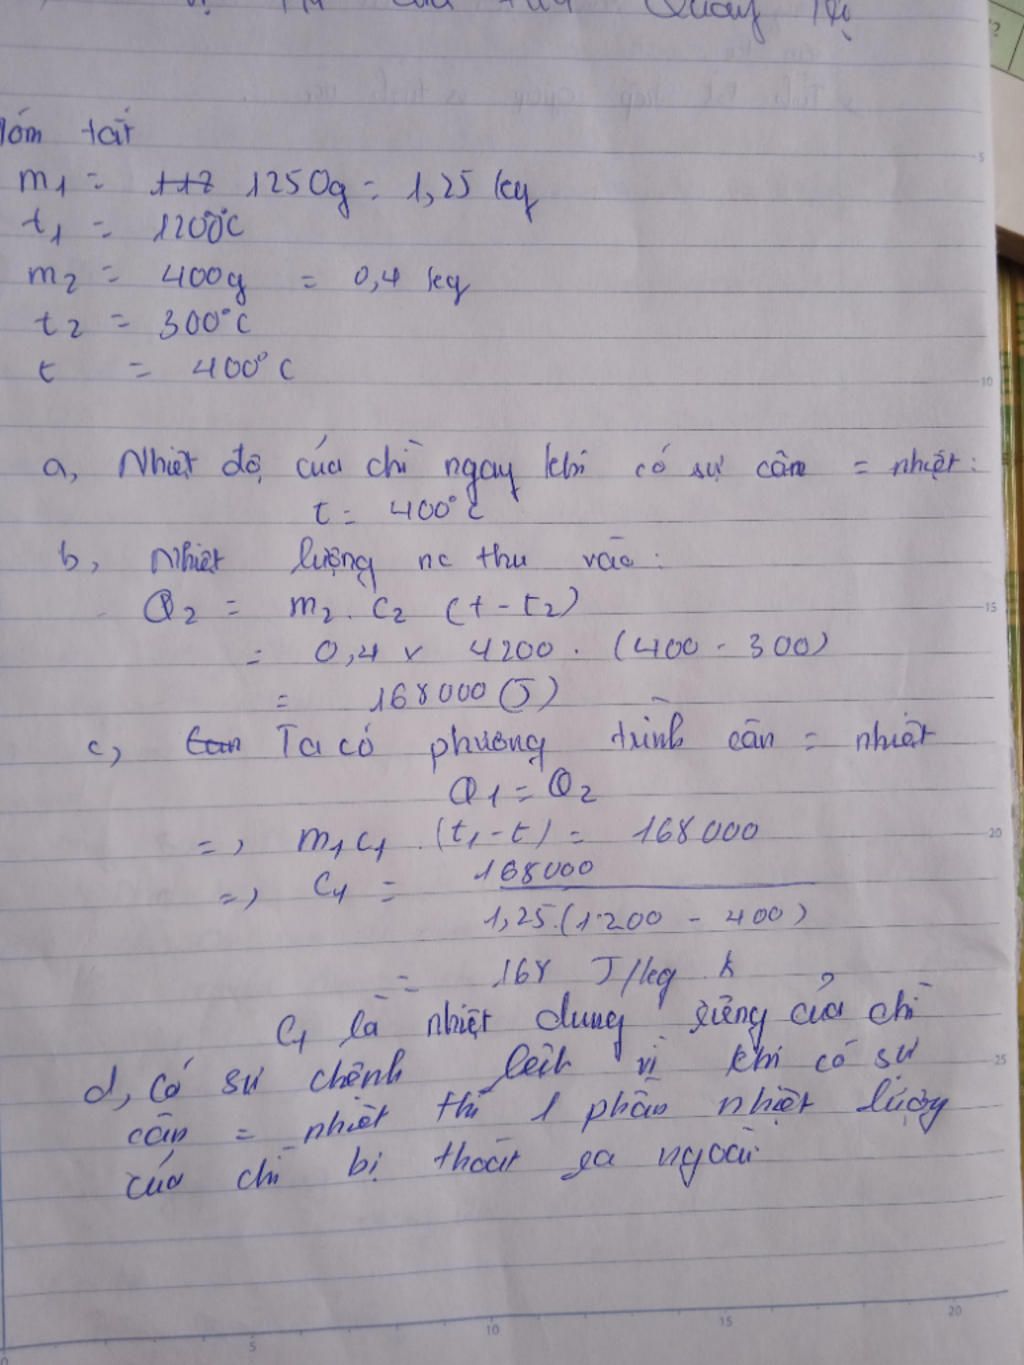 Tóm tắt
m1 = 1250g = 1,25 kg
t1 = 1200°C
m2 = 400g = 0,4 kg
t2 = 300°C
t = 400°C
a, Nhiệt độ của chì ngay khi có sự cân = nhiệt:
t = 400°C
b, Nhiệt lượng nc thu vào:
Q2 = m2. C2 (t - t2)
= 0,4 x 4200 . (400 - 300)
= 168000 (J)
c, Ta có phương trình cân = nhiệt
Q1 = Q2
=> m1 C1 . (t1 - t) = 168000
=> C1 = 168000
1,25.(1200 - 400)
= 168 J/kg k
C1 là nhiệt dung riêng của chì
d, Có sự chênh lệch vì khi có sự
cân = nhiệt thì 1 phần nhiệt lượng
của chì bị thoát ra ngoài